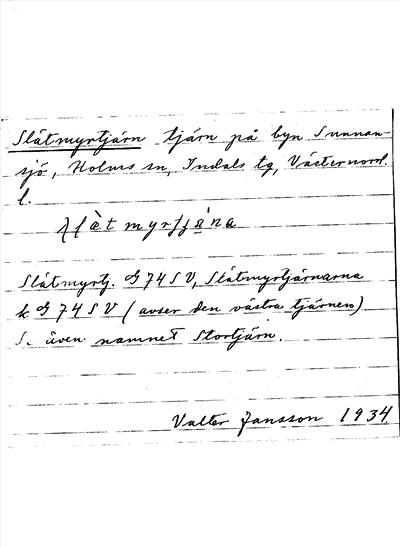 Slåtmyrtjärn tjärn på byn Sunnan-
sjö, Holms sn, Indals tg, Västernorrl.
l.
Slåtmyrtj. G 74 S V, Slåtmyrtjärnarna
k G 74 S V (avser den västra tjärnen)
S. även namnet Stortjärn.
Valter Jansson 1934.